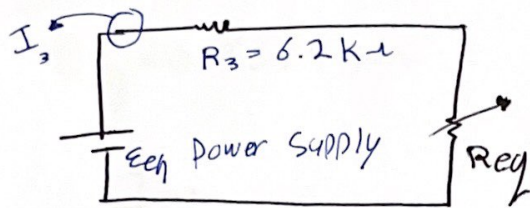 I₃
R₃ = 6.2 KΩ
Eeq Power Supply
Req